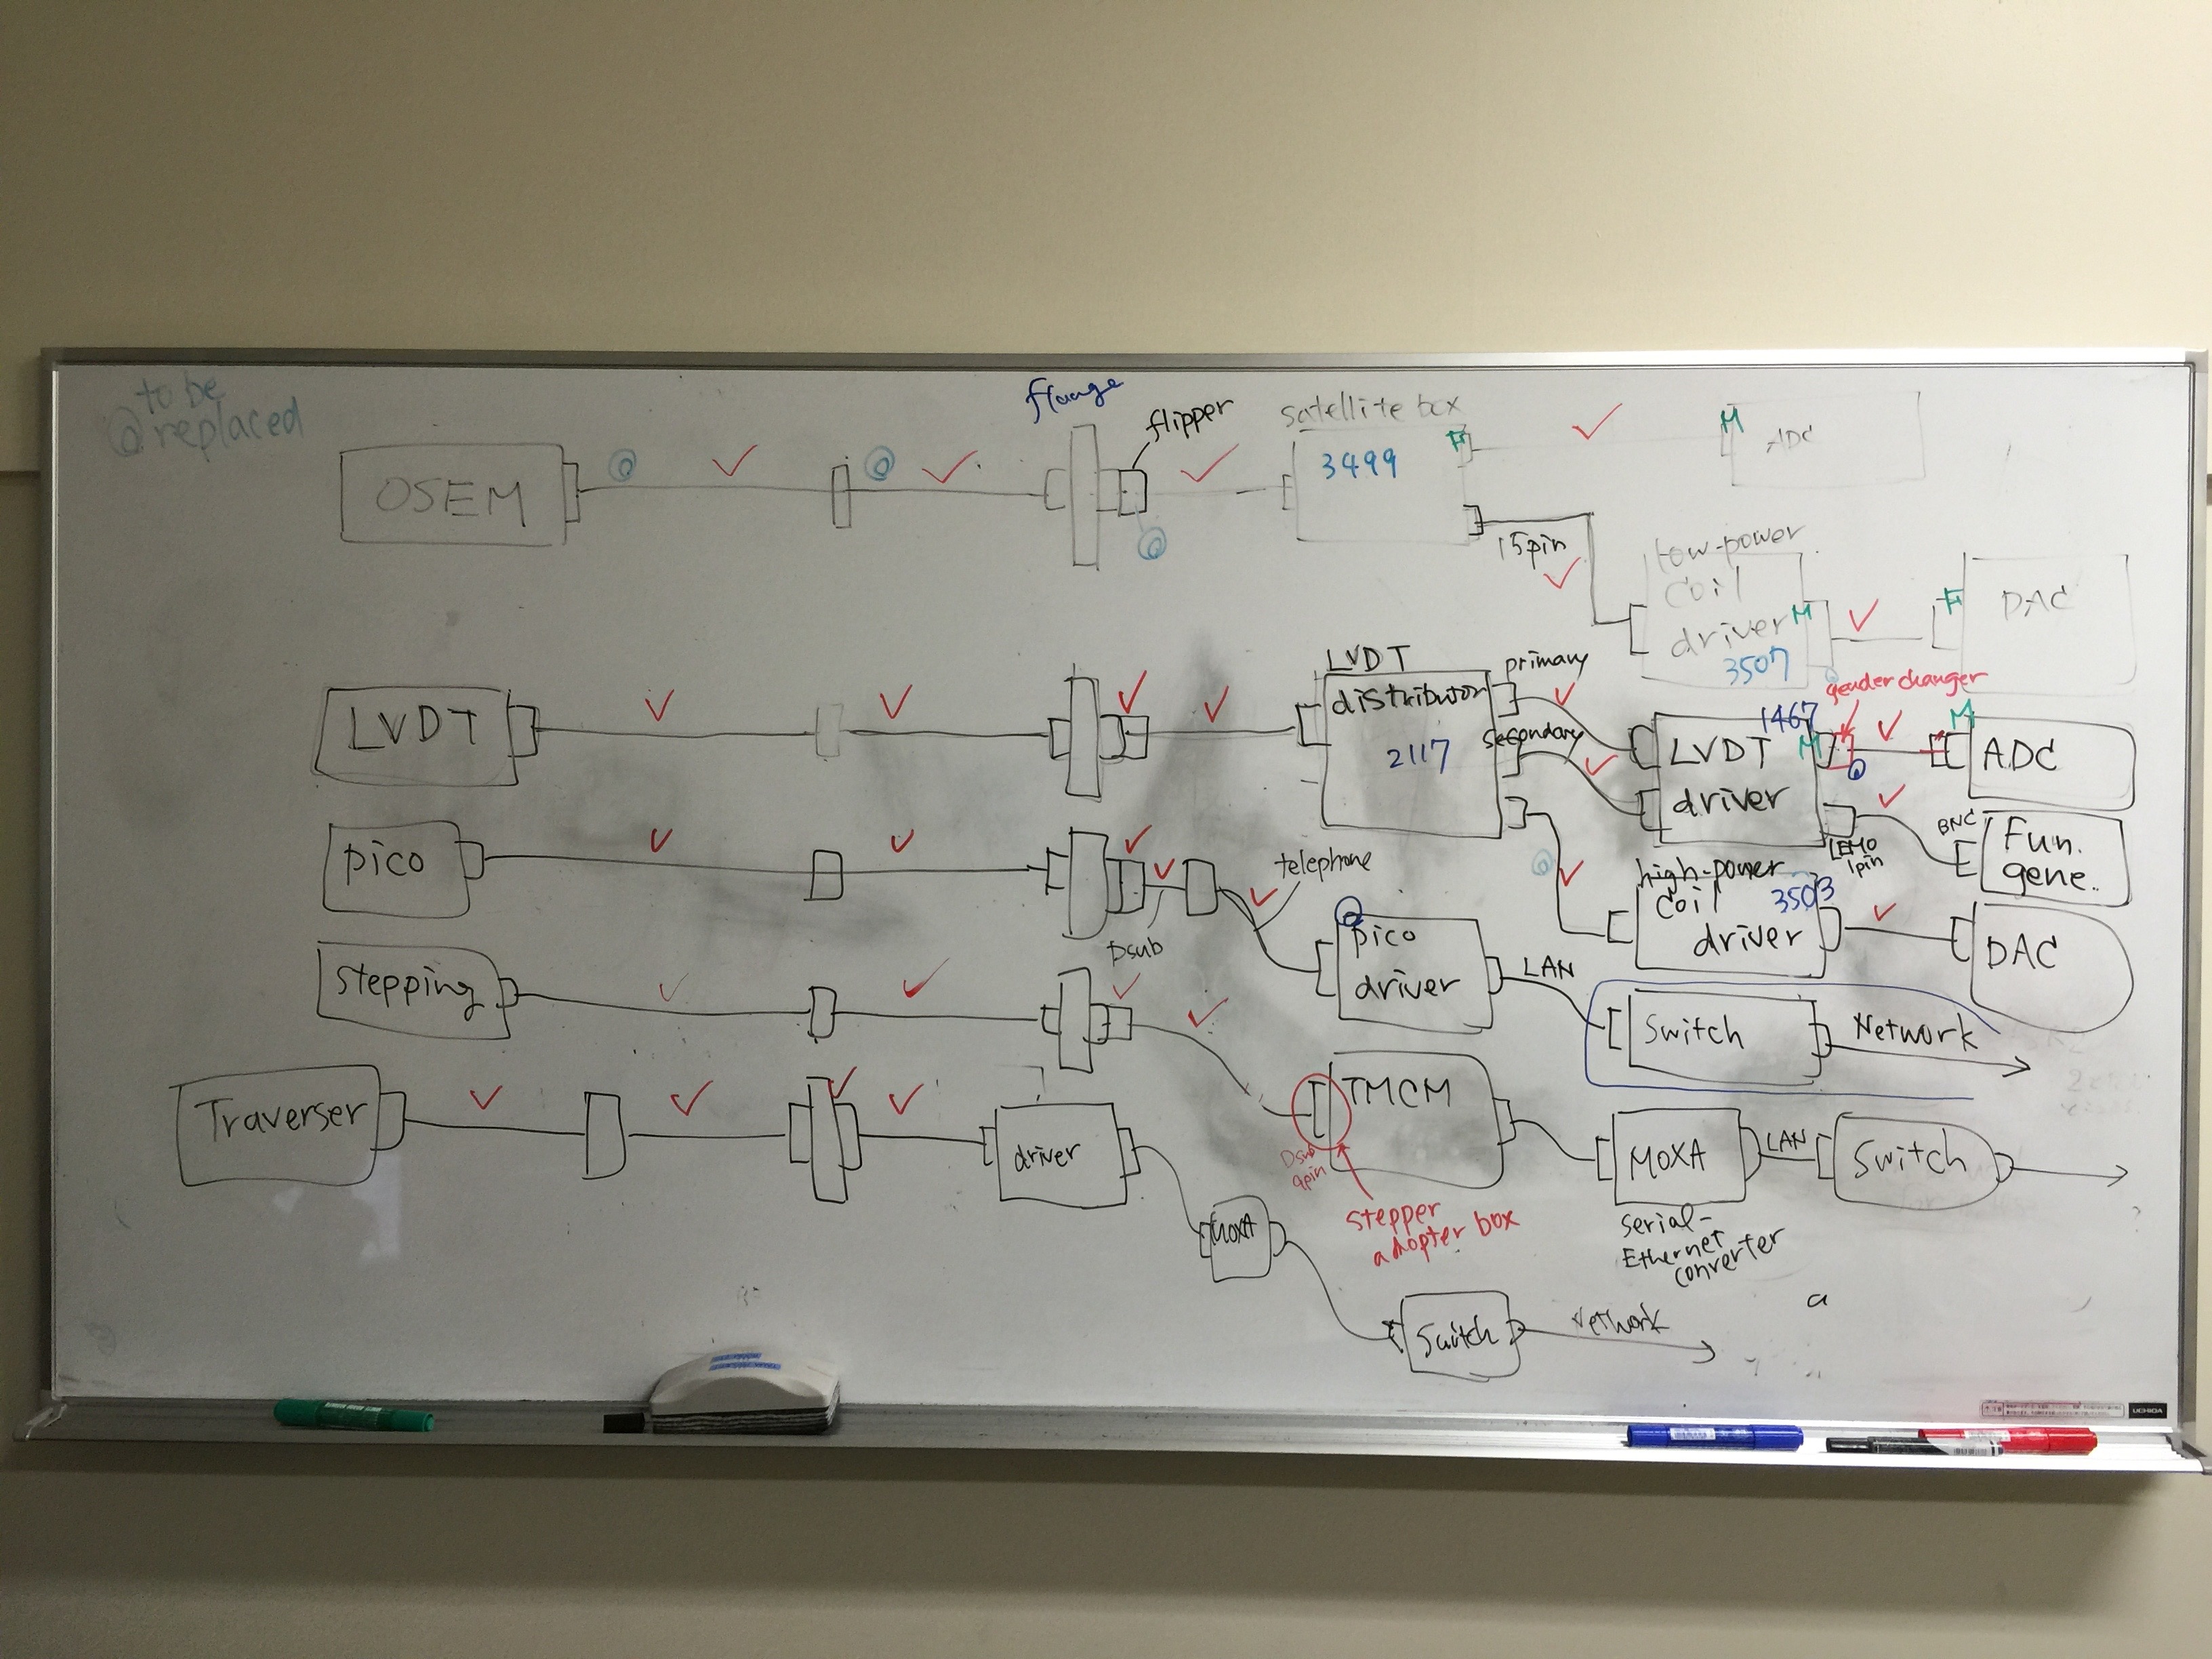 to be
@ replaced
flange
flipper
OSEM
@
@
@
satellite box
3499
F
M
ADC
15pin
low-power
coil
driver
M
3507
F
DAC
LVDT
LVDT
distributor
2117
primary
secondary
1467
LVDT
driver
M
gender changer
@
M
ADC
LEMO
1pin
BNC
Fun.
gene.
pico
Dsub
telephone
@
pico
driver
LAN
Switch
Network
@
high-power
coil
driver
3503
DAC
stepping
Dsub
9pin
TMCM
stepper
adopter box
MOXA
serial-
Ethernet
converter
LAN
Switch
Traverser
driver
MOXA
Switch
Network
a
UCHIDA